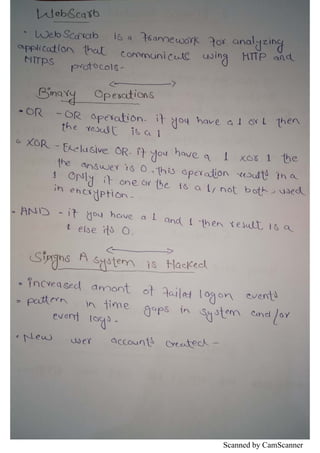 WebScarb
• WebScarab is a framework for analyzing
application that communicate using HTTP and
HTTPS protocols.
Binary Operations
• OR - OR operation. if you have a 1 or 1 then
the result is a 1
• XOR - Exclusive OR. if you have a 1 xor 1 the
the answer is 0. this operation results in a
1 only if one or the is a 1, not both, used
in encryption.
• AND - if you have a 1 and 1 then result is a
1 else its 0.
Singns A system is Hacked
• increased amont of failed logon events
• pattern in time gaps in system and/or
event logs.
• New user accounts created -
Scanned by CamScanner